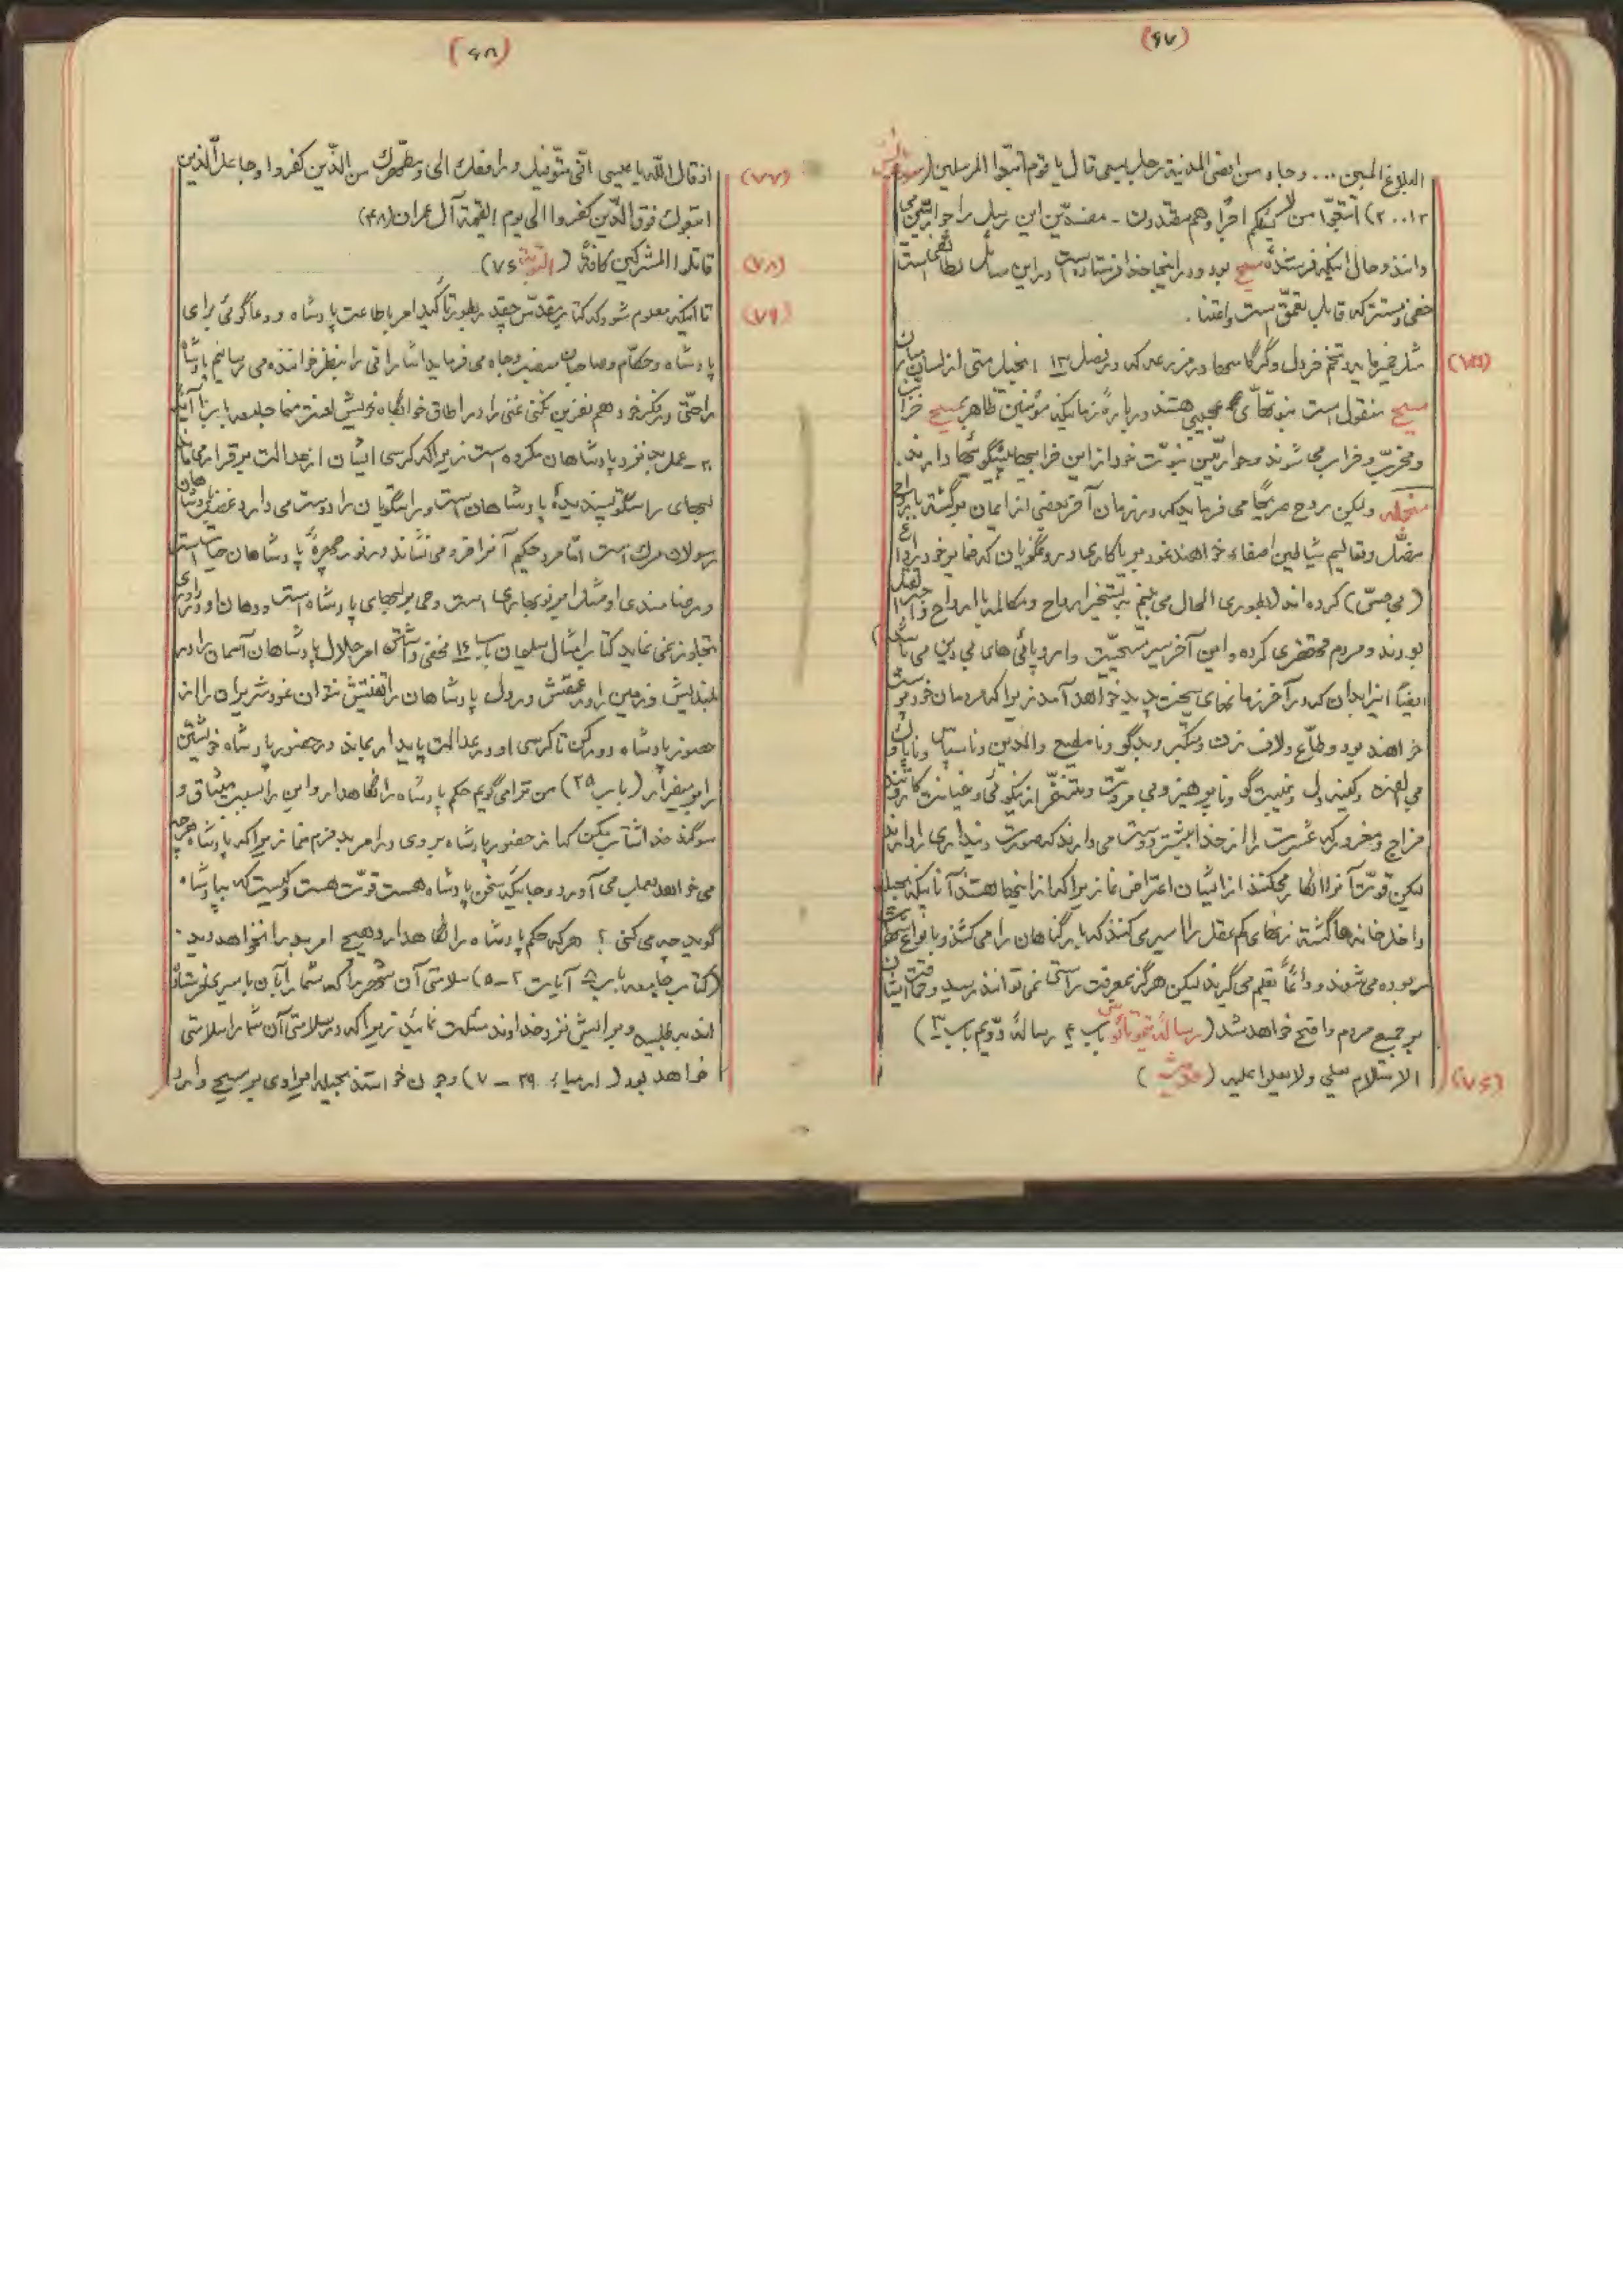 (۶۷)
البلاغ المبین ... و جاء من اقصی المدینة رجل یسعی قال یا قوم اتبعوا المرسلین (سوره یس
۱۳..۲۰) اتبعوا من لا یسئلکم اجرا و هم مهتدون - مفسدین این رسل را حواریین می
دانند و حال اینکه فرستندهٔ مسیح بود و در اینجا خدا فرستاده است و در این مسائل
خفی و مستتر که قابل تعمق است و اعتنا .
(۷۵) مثل خمیرمایه و تخم خردل و گرگاسها و مزرعه که در فصل ۱۳ انجیل متی از لسان
مسیح منقول است نبوتهای عجیبی هستند درباره زمانیکه مؤمنین ظاهر بمسیح خراب
و مخرب و خراب می شوند و حواریین نبوت خود از این خرابیها پیشگوئیها دارند .
منجمله ولیکن روح صریحا می فرماید که در زمان آخر بعضی از ایمان برگشته بارواح
مضل و تعالیم شیاطین اصغاء خواهند نمود بریاکاری دروغگویان که ضمایر خود را داغ
(بی حس) کرده اند (بطوری الحال می بینم بتسخیر ارواح و مکالمه با ارواح
بودند و مردم محتضری کرده و این آخر سیر مسیحیت و اروپائی های بی دین می باشد)
ایضا اینرا بدان که در آخر زمانهای سخت پدید خواهد آمد زیرا که مردمان خودپرست
خواهند بود و طماع و لاف زن و متکبر و بدگو و نامطیع والدین و ناسپاس و ناپاک و
بی الفت و کینه دل و غیبت گو و ناپرهیز و بی مروت و متنفر از نیکوئی و خیانت کار و تند
مزاج و مغرور که عشرت را از خدا بیشتر دوست می دارند که صورت دینداری را دارند
لیکن قوت آنرا انکار میکنند از ایشان اعراض نما زیرا که از اینها هستند آنانیکه بحیله
داخل خانه ها گشته زنهای کم عقل را اسیر می کنند که بار گناهان را می کشند و بانواع شهوات
ربوده می شوند و دائما تعلیم می گیرند لیکن هرگز بمعرفت راستی نمی توانند رسید و حماقت ایشان
بر جمیع مردم واضح خواهد شد (رساله تیموتائوس باب ۴ رسالهٔ دویم باب ۳)
(۷۶) الاسلام یعلی و لا یعلوا علیه (حدیث)
(۶۸)
(۷۷) اذ قال الله یا عیسی انی متوفیک و رافعک الی و مطهرک من الذین کفروا و جاعل الذین
اتبعوک فوق الذین کفروا الی یوم القیمة آل عمران (۴۸)
(۷۸) قاتلوا المشرکین کافة (التوبة ۷۶)
(۷۹) تا اینکه معلوم شود که کتاب مقدس چقدر بطور تأکید امر باطاعت پادشاه و دعاگوئی برای
پادشاه و حکام و صاحبان منصب و جاه می فرماید اشاراتی را بنظر خواننده می رسانیم پادشاه
را حتی در فکر خود هم نفرین مکن و غنی را در اطاق خوابگاه خویش لعنت منما جامعه
۲۰ - عمل بد نزد پادشاهان مکروه است زیرا که کرسی ایشان از عدالت برقرار می ماند
لبهای راستگو پسندیدهٔ پادشاهان است و راستگویان را دوست می دارد غضب پادشاهان
رسولان مرگ است اما مرد حکیم آنرا فرو می نشاند در نور چهرهٔ پادشاهان حیات است
و رضامندی او مثل ابر نوبهاری است وحی بر لبهای پادشاه است و دهان او در داوری
تجاوز نمی نماید کتاب امثال سلیمان باب ۱۶ مخفی داشتن امر جلال پادشاهان آسمان را در
بلندیش و زمین را در عمقش و دل پادشاهان را تفتیش نتوان نمود شریران را از
حضور پادشاه دور کن تا کرسی او در عدالت پایدار بماند در حضور پادشاه خویشتن
را برمیفراز (باب ۲۵) من ترا می گویم حکم پادشاه را نگاهدار و این را بسبب میثاق و
سوگند خدا شتاب مکن که از حضور پادشاه بروی و در امر بد جزم منما زیرا که پادشاه هر چه
می خواهد بعمل می آورد و جائیکه سخن پادشاه هست قوت هست و کیست که بپادشاه
گوید چه می کنی ؟ هر که حکم پادشاه را نگاهدارد هیچ امر بد را نخواهد دید .
(کتاب جامعه باب ۸ آیات ۲ - ۵) سلامتی آن شهر را که شما را بآن باسیری فرستاده
اند بطلبید و برایش نزد خداوند مسئلت نمائید زیرا که در سلامتی آن شما را سلامتی
خواهد بود (ارمیا ۲۹ - ۷) و چون خواستند بحیله ایرادی بر مسیح وارد